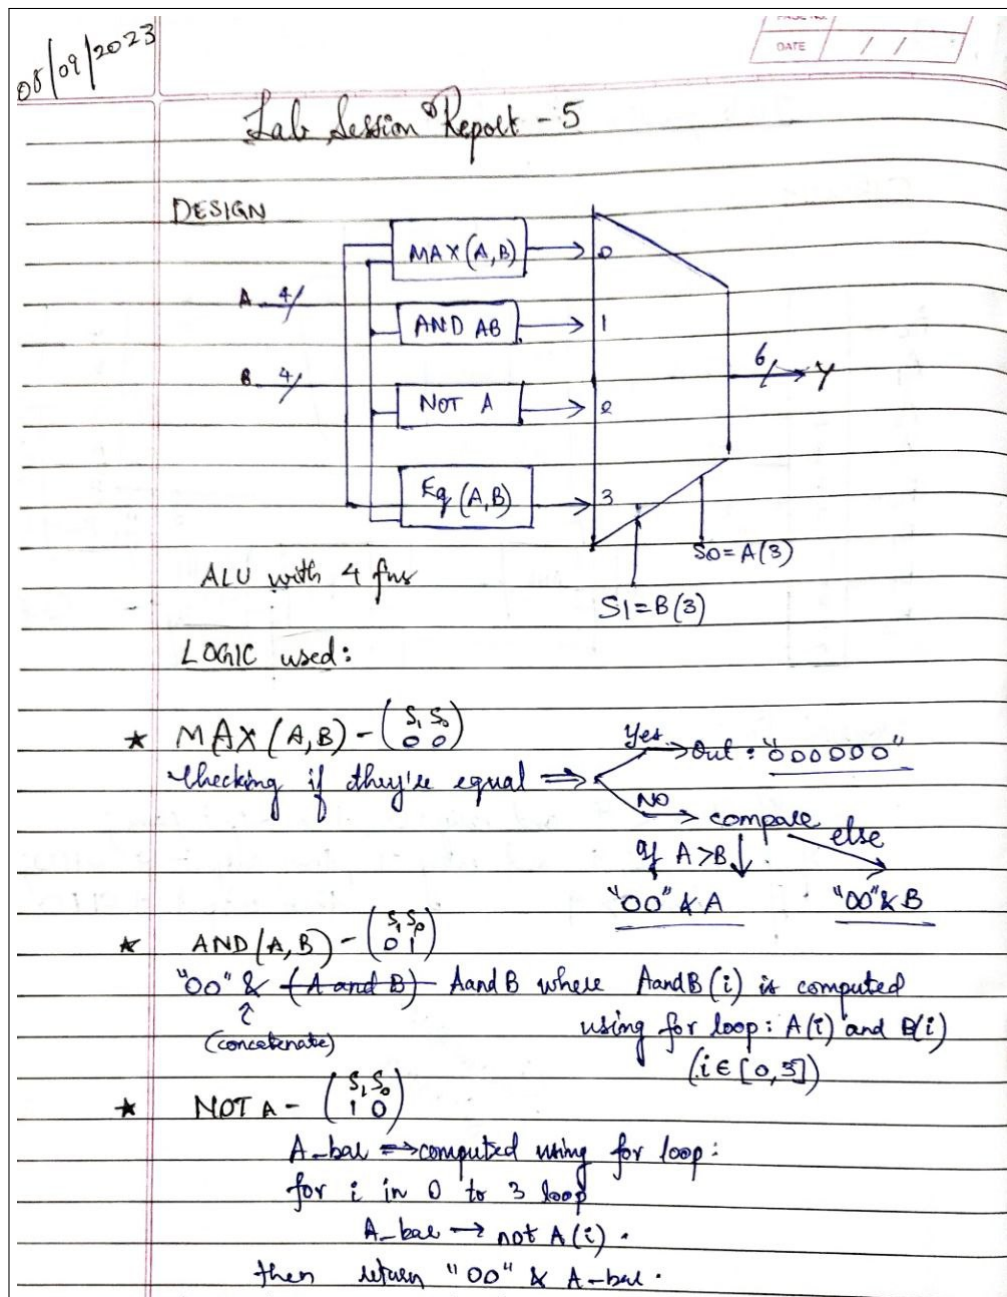 08/09/2023
PAGE NO.
DATE / /
Lab Session Report - 5
DESIGN
MAX(A,B) 0
A 4/
AND AB 1
B 4/
6/ Y
NOT A 2
Eq (A,B) 3
S0=A(3)
ALU with 4 fns
S1=B(3)
LOGIC used:
★ MAX(A,B) - (S1 S0
0 0)
Checking if they're equal ⇒ Yes → Out : "000000"
NO → compare
If A>B ↓ else
"00" & A "00" & B
★ AND(A,B) - (S1 S0
0 1)
"00" & (A and B) AandB where AandB(i) is computed
(concatenate) using for loop: A(i) and B(i)
(i ∈ [0,3])
★ NOT A - (S1 S0
1 0)
A_bar ⇒ computed using for loop:
for i in 0 to 3 loop
A_bar → not A(i).
then return "00" & A-bar.